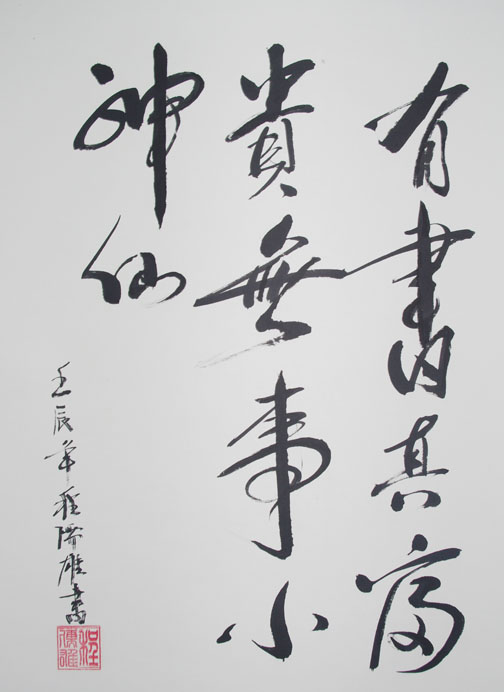 有書真富
貴無事小
神仙
壬辰年程雄書